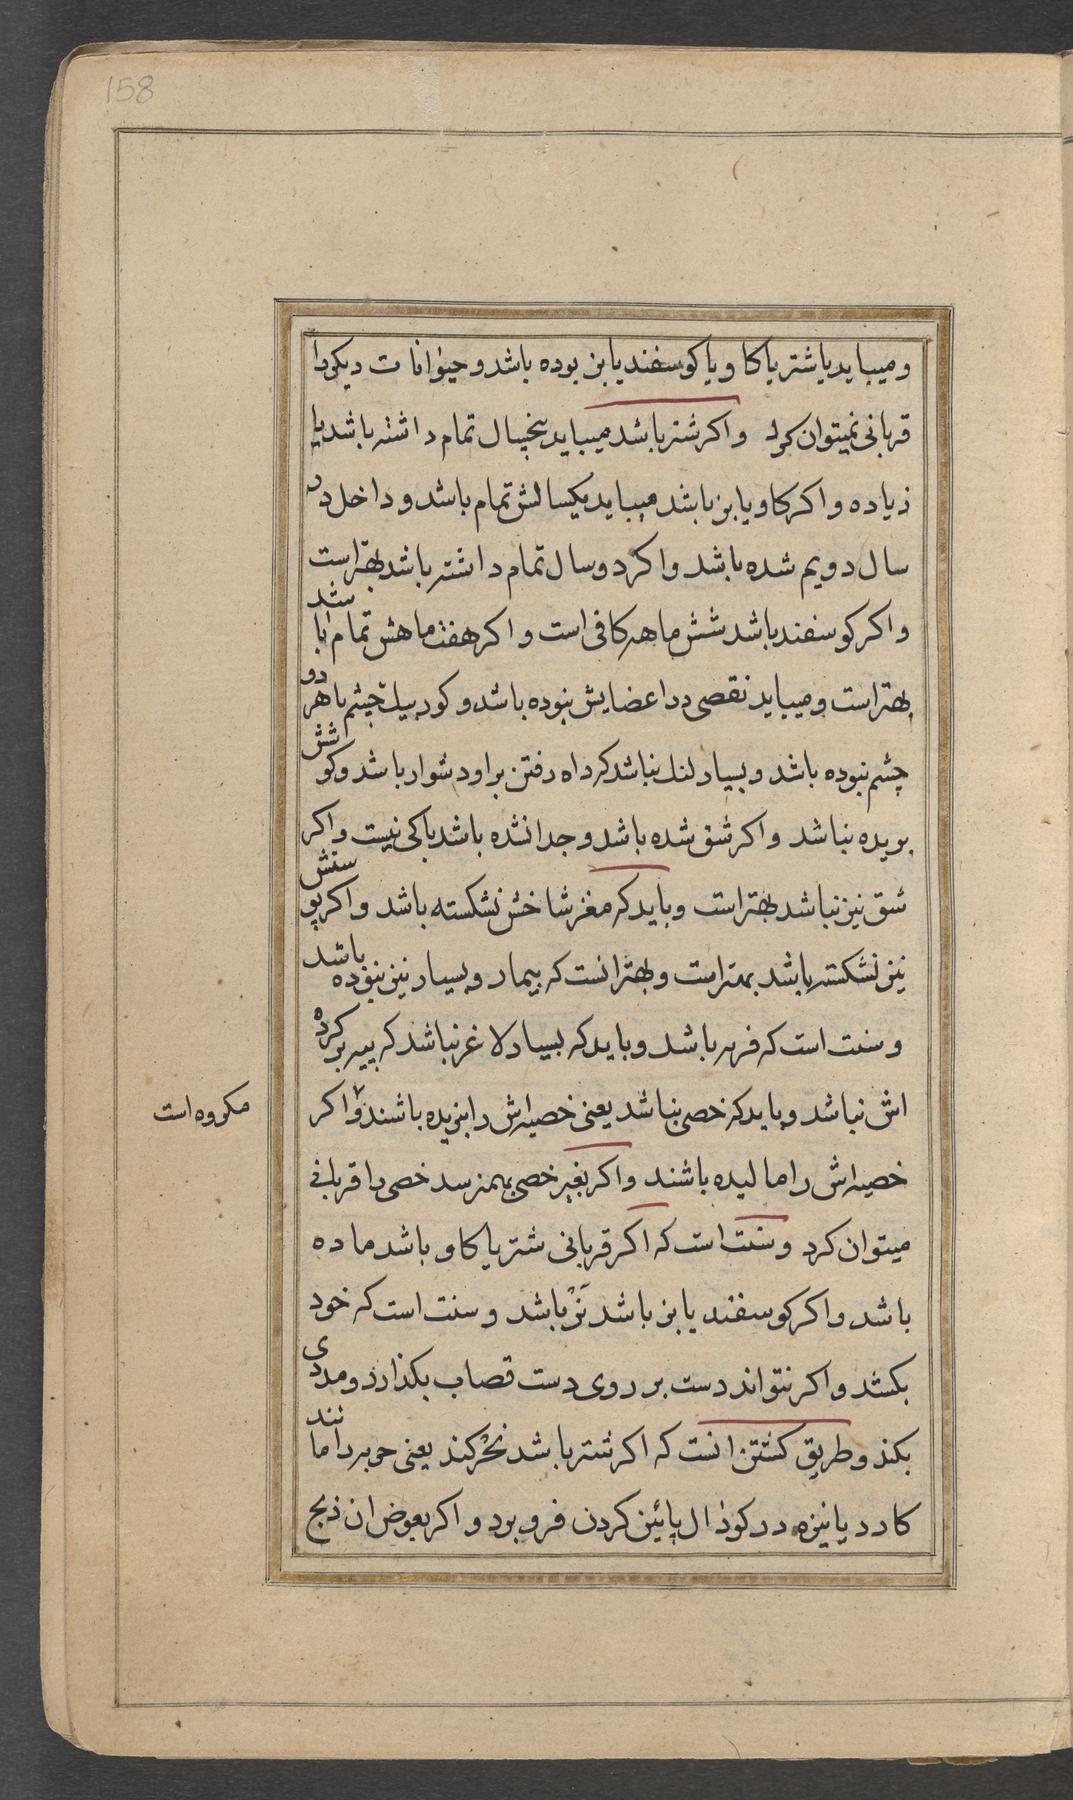 158
و میباید یا شتر یا کاو یا کوسفند یا بز بوده باشد و حیوانات دیکر را
قربانی نمیتوان کرد و اکر شتر باشد میباید پنجسال تمام داشته باشد یا
زیاده و اکر کاو یا بز باشد میباید یکسالش تمام باشد و داخل در
سال دویم شده باشد و اکر دو سال تمام داشته باشد بهتر است
و اکر کوسفند باشد شش ماهه کافی است و اکر هفت ماهش تمام باشد
بهتر است و میباید نقصی در اعضایش نبوده باشد و کور بیک چشم یا هر دو
چشم نبوده باشد و بسیار لنک نباشد که راه رفتن بر او دشوار باشد و کوشش
بریده نباشد و اکر شق شده باشد و جدا نشده باشد باکی نیست و اکر
شق نیز نباشد بهتر است و باید که مغز شاخش نشکسته باشد و اکر پوستش
نیز نشکسته باشد بهتر است و بهتر انست که بیمار و بسیار نیز نبوده باشد
و سنت است که فربه باشد و باید که بسیار لاغر نباشد که پیه بر کرده
اش نباشد و باید که خصی نباشد یعنی خصیه‌اش را بنریده باشند و اکر
مکروه است
خصیه‌اش را مالیده باشند و اکر بغیر خصی بهم نرسد خصی را قربانی
میتوان کرد و سنت است که اکر قربانی شتر یا کاو باشد ماده
باشد و اکر کوسفند یا بز باشد نَرْ باشد و سنت است که خود
بکشد و اکر نتواند دست بر روی دست قصاب بکذارد و مددی
بکند و طریق کشتن انست که اکر شتر باشد نحْر کند یعنی حربه را مانند
کارد یا نیزه در کودال پائین کردن فرو برد و اکر بعوض ان ذبح